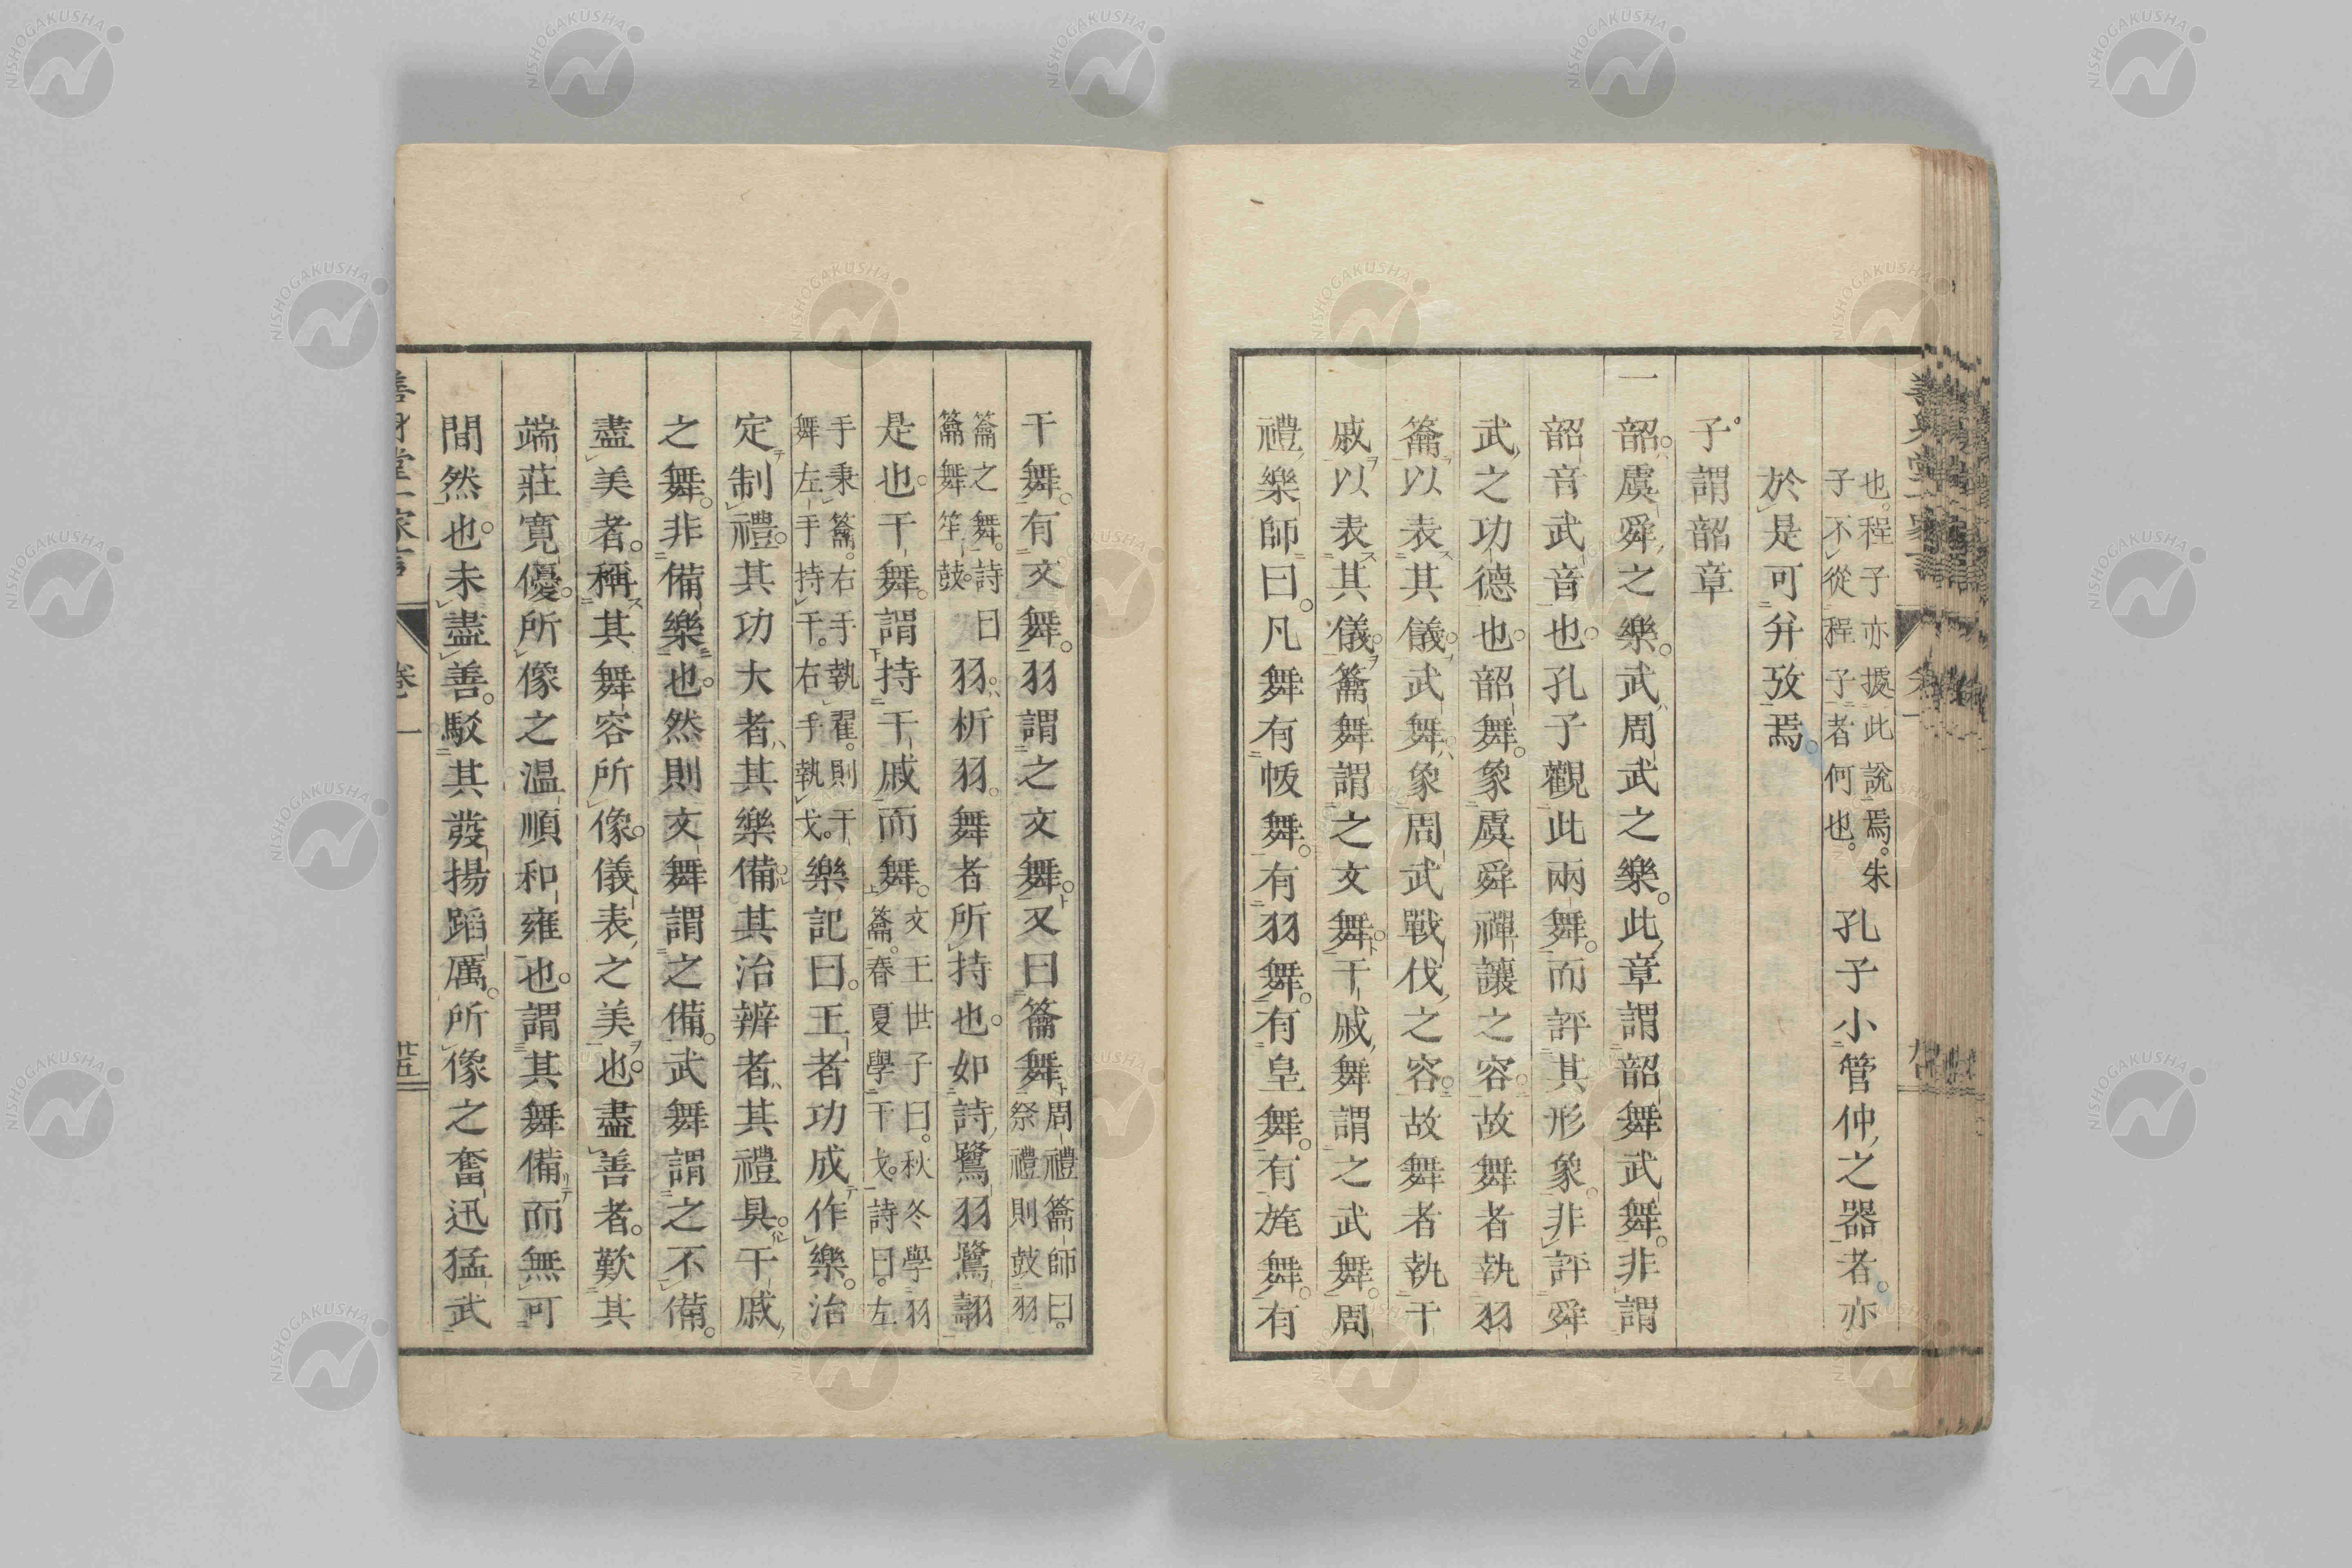 也。程子亦據此說焉。朱
子不從程子者何也。
孔子小管仲之器者。亦
於是可幷攷焉。
子謂韶章
一韶。虞舜之樂。武周武之樂。此章謂韶舞武舞。非謂
韶音武音也。孔子觀此兩舞。而評其形象。非評舜
武之功德也。韶舞。象虞舜禪讓之容。故舞者執羽
籥以表其儀。武舞。象周武戰伐之容。故舞者執干
戚以表其儀。籥舞謂之文舞。干戚舞謂之武舞。周
禮樂師曰。凡舞有帗舞。有羽舞。有皇舞。有旄舞。有
干舞。有文舞。羽謂之文舞。又曰籥舞
周禮籥師曰。
祭禮則鼓羽
籥之舞。詩曰
籥舞笙鼓。
羽。析羽。舞者所持也。如詩鷺羽鷺翿
是也。干舞。謂持干戚而舞。
文王世子曰。秋冬學羽
籥。春夏學干戈。詩曰。左
手秉籥。右手執翟。則干
舞左手持干。右手執戈。
樂記曰。王者功成作樂。治
定制禮。其功大者。其樂備。其治辨者。其禮具。干戚
之舞。非備樂也。然則文舞謂之備。武舞謂之不備。
盡美者。稱其舞容所像。儀表之美也。盡善者。歎其
端莊寬優。所像之溫順和雍也。謂其舞備而無可
間然也。未盡善。駁其發揚蹈厲。所像之奮迅猛武
卷一
廿五